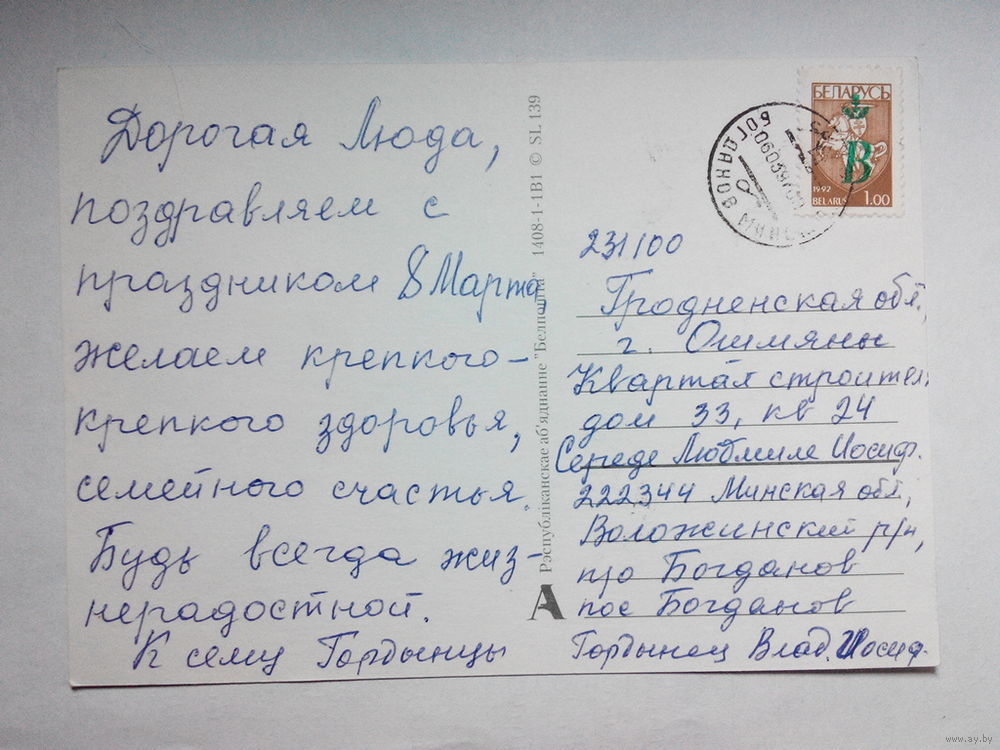 Дорогая Люда,
поздравляем с
праздником 8 Марта,
желаем крепкого-
крепкого здоровья,
семейного счастья.
Будь всегда жиз-
нерадостной.
К сему Гордынцы
Рэспубліканскае аб'яднанне "Белпошта" 1408-1-1В1 © SL 139
БЕЛАРУСЬ
В
1992
BELARUS 1.00
БОГДАНОВ МИНСК
231100
Гродненская обл.,
г. Ошмяны
Квартал строител.
дом 33, кв 24
Середе Людмиле Иосиф.
222344 Минская обл.,
Воложинский р/н,
п/о Богданов
пос Богданов
Гордынец Влад. Иосиф.
www.ay.by